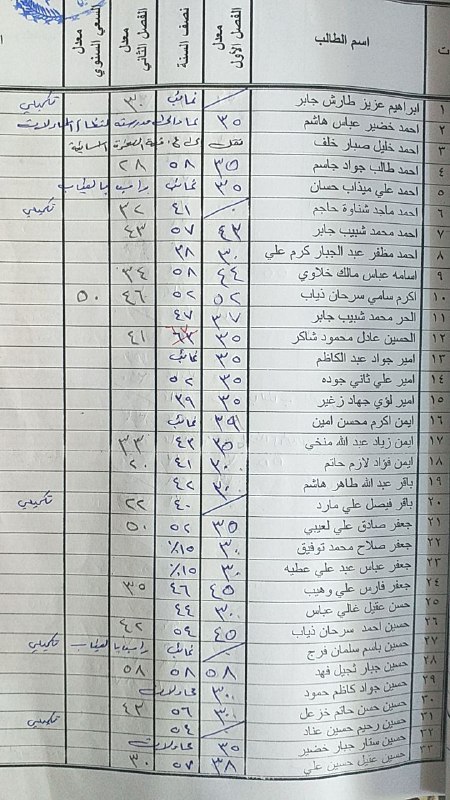 ت اسم الطالب معدل الفصل الأول نصف السنة معدل الفصل الثاني معدل السعي السنوي
١ ابراهيم عزيز طارش جابر غائب ٣٠ تكميلي
٢ احمد خضير عباس هاشم ٣٥
٣ احمد خليل صبار خلف
٤ احمد طالب جواد جاسم ٣٥ ٥٨ ٢٨
٥ احمد علي ميذاب حسان ٣٥ غائب راسب بالغياب
٦ احمد ماجد شناوة حاجم ٤١ ٣٢ تكميلي
٧ احمد محمد شبيب جابر ٤٣ ٥٧ ٤٣
٨ احمد مظفر عبد الجبار كرم علي ٣٠ ٣٨
٩ اسامه عباس مالك خلاوي ٤٤ ٥٨ ٣٤
١٠ اكرم سامي سرحان ذياب ٥٢ ٥٢ ٤٦ ٥٠
١١ الحر محمد شبيب جابر ٣٧ ٤٧
١٢ الحسين عادل محمود شاكر ٣٥ ٤١
١٣ امير جواد عبد الكاظم ٣٥ غائب
١٤ امير علي ثاني جوده ٣٥ ٥٢
١٥ امير لؤي جهاد زغير ٣٥ ٣٩
١٦ ايمن اكرم محسن امين ٣٩ غائب
١٧ ايمن زياد عبد الله منخي ٣٥ ٤٣ ٣٣
١٨ ايمن فؤاد لازم حاتم ٣٠ ٤١ ٢٠
١٩ باقر عبد الله طاهر هاشم ٣٠ ٤٢
٢٠ باقر فيصل علي مارد ٤٠ ٢٢ تكميلي
٢١ جعفر صادق علي لعيبي ٣٥ ٥٢ ٥٠
٢٢ جعفر صلاح محمد توفيق ٣٠ ١٥٪
٢٣ جعفر عباس عبد علي عطيه ٣٠ ١٥٪
٢٤ جعفر فارس علي وهيب ٤٥ ٤٦ ٣٥
٢٥ حسن عقيل غالي عباس ٣٠ ٤٤
٢٦ حسين احمد سرحان ذياب ٤٥ ٥٩ ٤٢
٢٧ حسين باسم سلمان فرج غائب راسب بالغياب تكميلي
٢٨ حسين جبار ثجيل فهد ٥٨ ٥٨ ٥٨
٢٩ حسين جواد كاظم حمود ٣٠
٣٠ حسين حسن حاتم خزعل ٣٠ ٥٦ ٤٣
٣١ حسين رحيم حسين عناد ٥٤ تكميلي
٣٢ حسين ستار جبار خضير ٣٥
٣٣ حسين عقيل حسين علي ٣٨ ٥٧ ٣٠